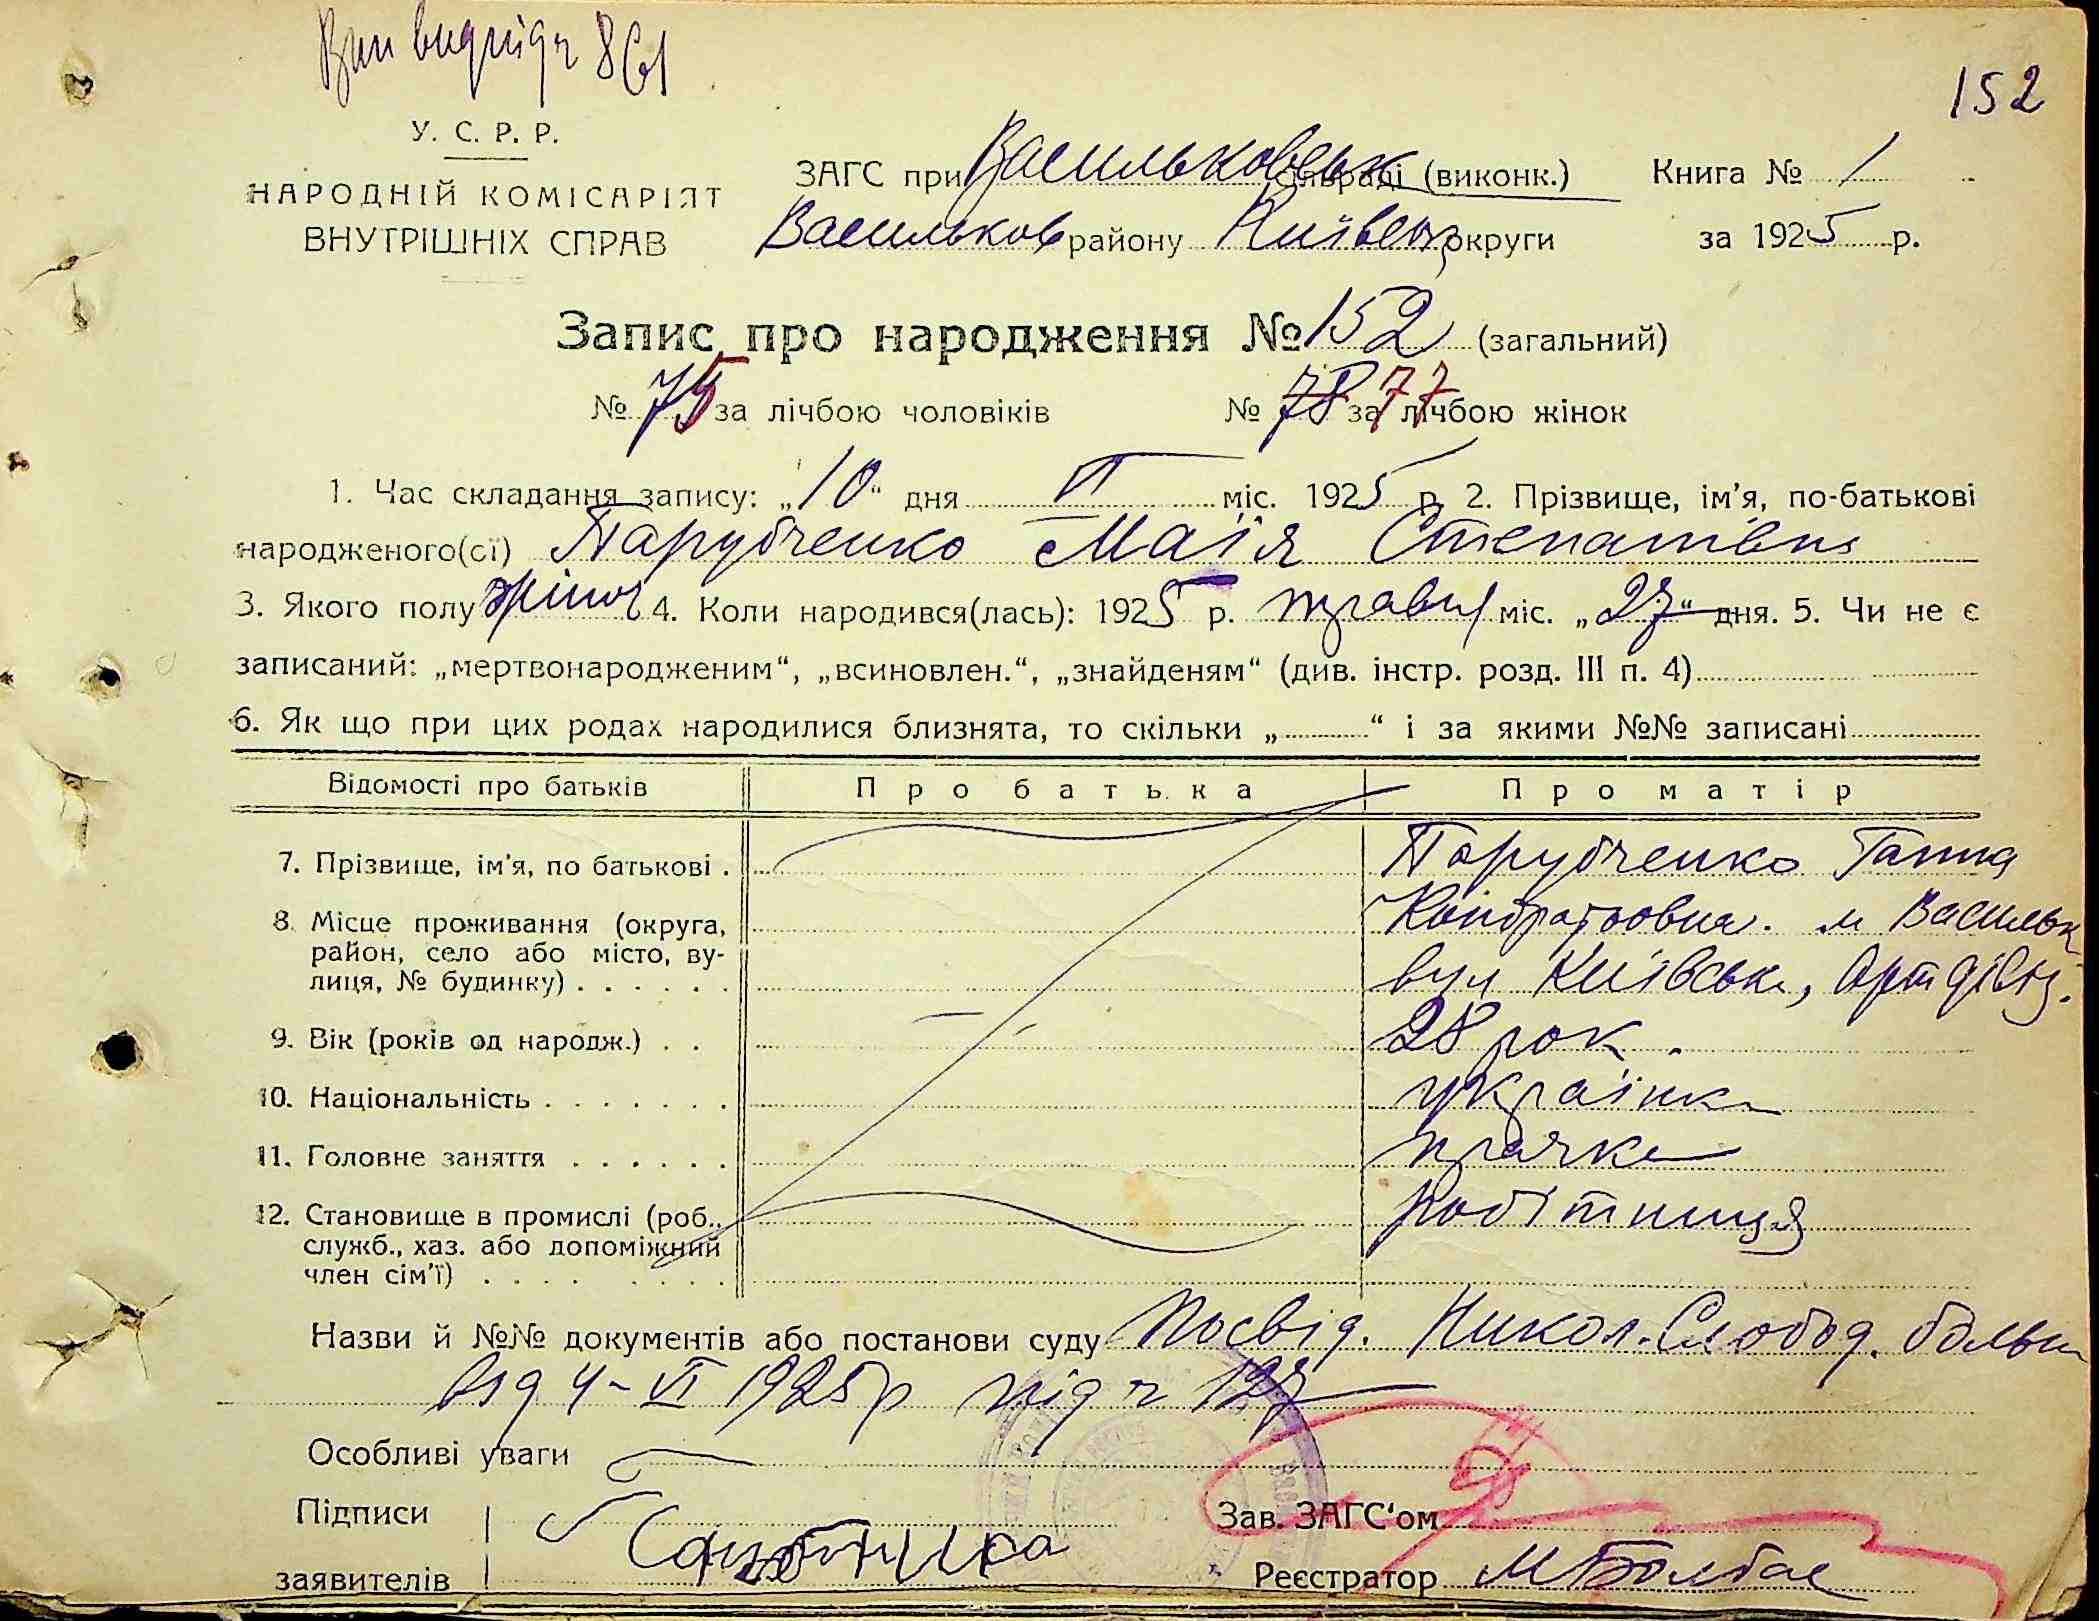 Вип видпід ч 861
152
У. С. Р. Р.
НАРОДНІЙ КОМІСАРІЯТ
ВНУТРІШНІХ СПРАВ
ЗАГС при Васильковськ сільраді (виконк.) Книга № 1
Васильков району Київськ округи за 1925 р.
Запис про народження № 152 (загальний)
№ 75 за лічбою чоловіків № 78 77 за лічбою жінок
1. Час складання запису: „10“ дня VI міс. 1925 р. 2. Прізвище, ім'я, по-батькові
народженого(сї) Парубченко Маія Степанівна
3. Якого полу жіноч 4. Коли народився(лась): 1925 р. травня міс. „27“ дня. 5. Чи не є
записаний: „мертвонародженим“, „всиновлен.“, „знайденям“ (див. інстр. розд. III п. 4)
6. Як що при цих родах народилися близнята, то скільки „ “ і за якими №№ записані
Відомості про батьків Про батька Про матір
7. Прізвище, ім'я, по батькові . Парубченко Ганна
8. Місце проживання (округа, Кондратьовна. м Васильк
район, село або місто, ву-
лиця, № будинку) . . . . . . вул Київськ, Артдівіз.
9. Вік (років од народж.) . . 28 рок.
10. Національність . . . . . . . українка
11. Головне заняття . . . . . . прачка
12. Становище в промислі (роб., робітниця
служб., хаз. або допоміжний
член сім'ї) . . . . . . . .
Назви й №№ документів або постанови суду Посвід. Никол. Слобод. больн
від 4-VI 1925р під ч 127
Особливі уваги
Підписи Зав. ЗАГС'ом
заявителів Реєстратор МБолбас